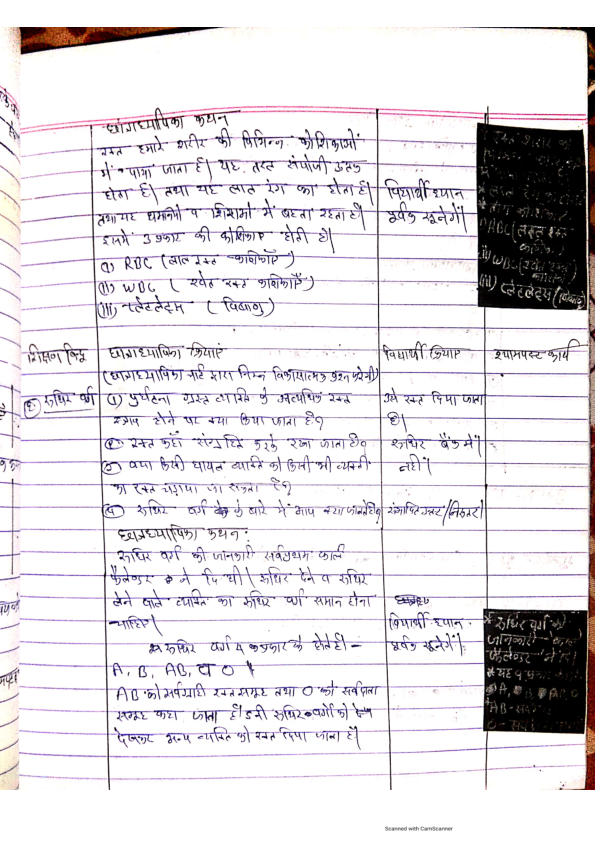 छात्राध्यापिका कथन
रक्त हमारे शरीर की विभिन्न कोशिकाओं
में पाया जाता है। यह तरल संयोजी ऊतक
होता है। तथा यह लाल रंग का होता है।
तथा यह धमनियों व शिराओं में बहता रहता है।
इसमें 3 प्रकार की कोशिकाएं होती है।
(i) RBC (लाल रक्त कणिकाएँ)
(ii) WBC ( श्वेत रक्त कणिकाएँ)
(iii) प्लेटलेट्स ( बिंबाणु )
विद्यार्थी ध्यान
पूर्वक सुनेगें।
RBC (लाल रक्त
ii) WBC (श्वेत रक्त
(iii) प्लेटलेट्स (बिंबाणु)
शिक्षण बिन्दु
छात्राध्यापिका क्रियाएं
विद्यार्थी क्रियाएं
श्यामपट्ट कार्य
(छात्राध्यापिका चार्ट द्वारा निम्न विकासात्मक प्रश्न करेगी)
रूधिर वर्ग
(1) दुर्घटना ग्रस्त व्यक्ति के अत्यधिक रक्त
स्त्राव होने पर क्या किया जाता है?
उसे रक्त दिया जाता
है।
रक्त कहाँ संग्रहित करके रखा जाता है?
रूधिर बैंक में।
क्या किसी घायल व्यक्ति को किसी भी व्यक्ती
का रक्त चढ़ाया जा सकता है?
नहीं।
रूधिर वर्ग के बारे में आप क्या जानते है?
संभावित उत्तर/निरुतर।
छात्राध्यापिका कथन:
रूधिर वर्ग की जानकारी सर्वप्रथम कार्ल
ने दि थी। रूधिर देने व रूधिर
लेने वाले व्यक्ति का रूधिर वर्ग समान होना
चाहिए।
विद्यार्थी ध्यान
पूर्वक सुनेगें।
रूधिर वर्ग 4 प्रकार के होते है।-
A, B, AB, व O
AB को सर्वग्राही रक्त समूह तथा O को सर्वदाता
समूह कहा जाता है। इसी रूधिर वर्गो को
देखकर अन्य व्यक्ति को रक्त दिया जाता है।
* रूधिर वर्ग की
जानकारी
ने दी।
* यह 4 प्रकार
AB-
O-
Scanned with CamScanner